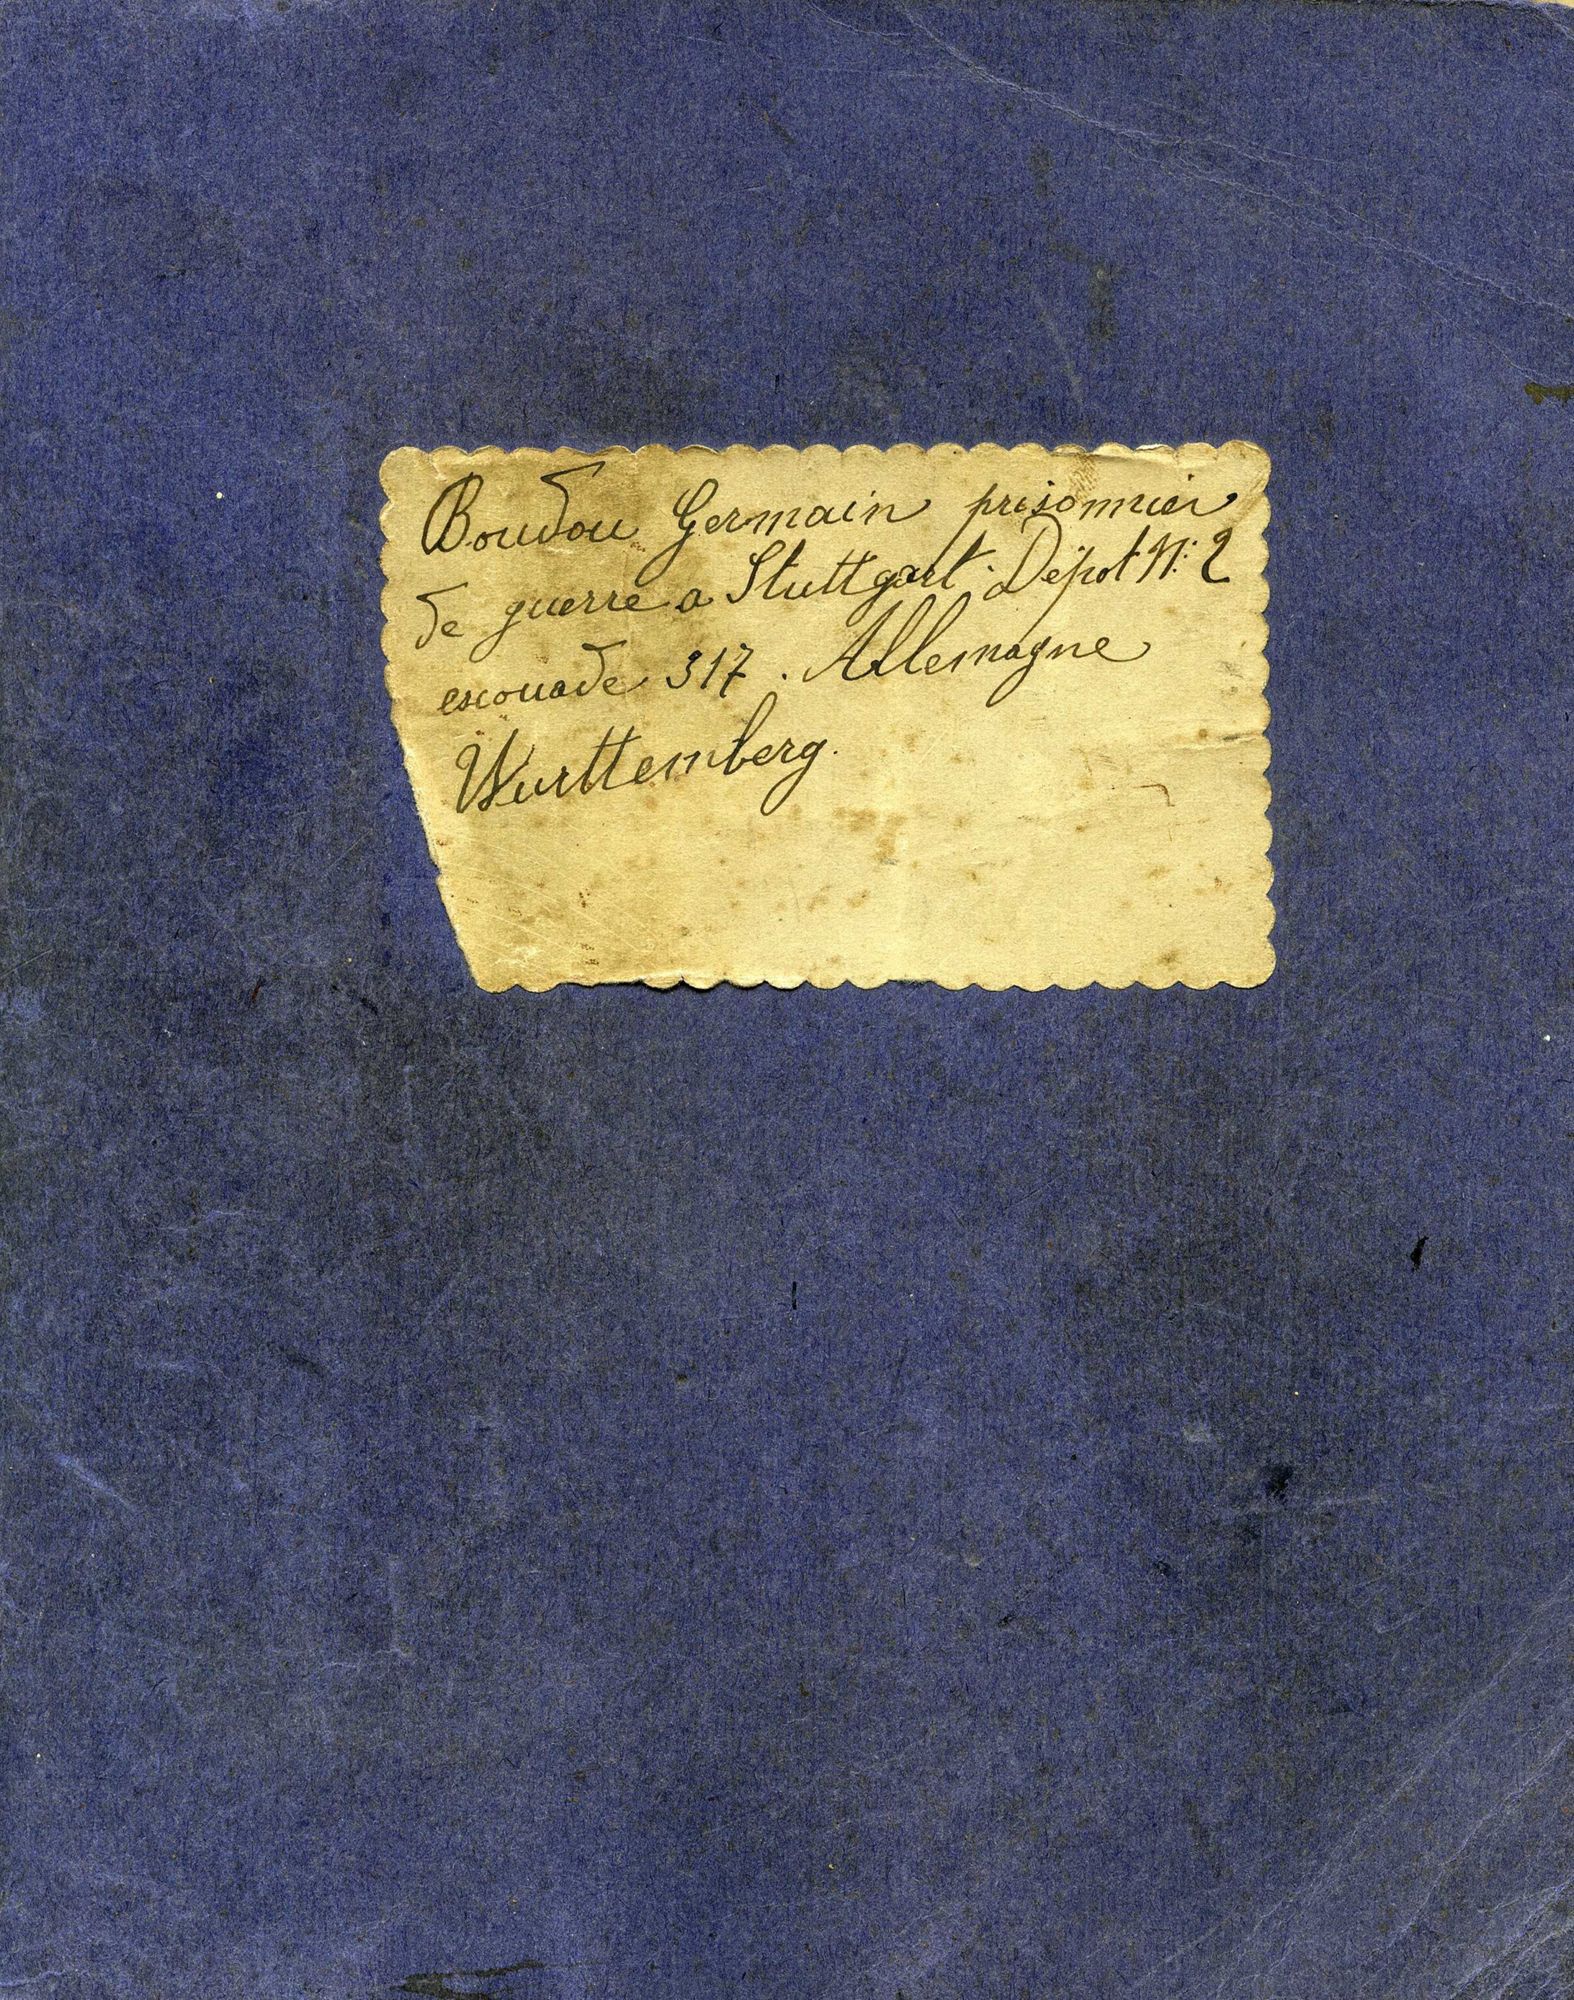 Boudou Germain prisonnier
de guerre a Stuttgart. Dépot N: 2
escouade 317. Allemagne
Wurttemberg.